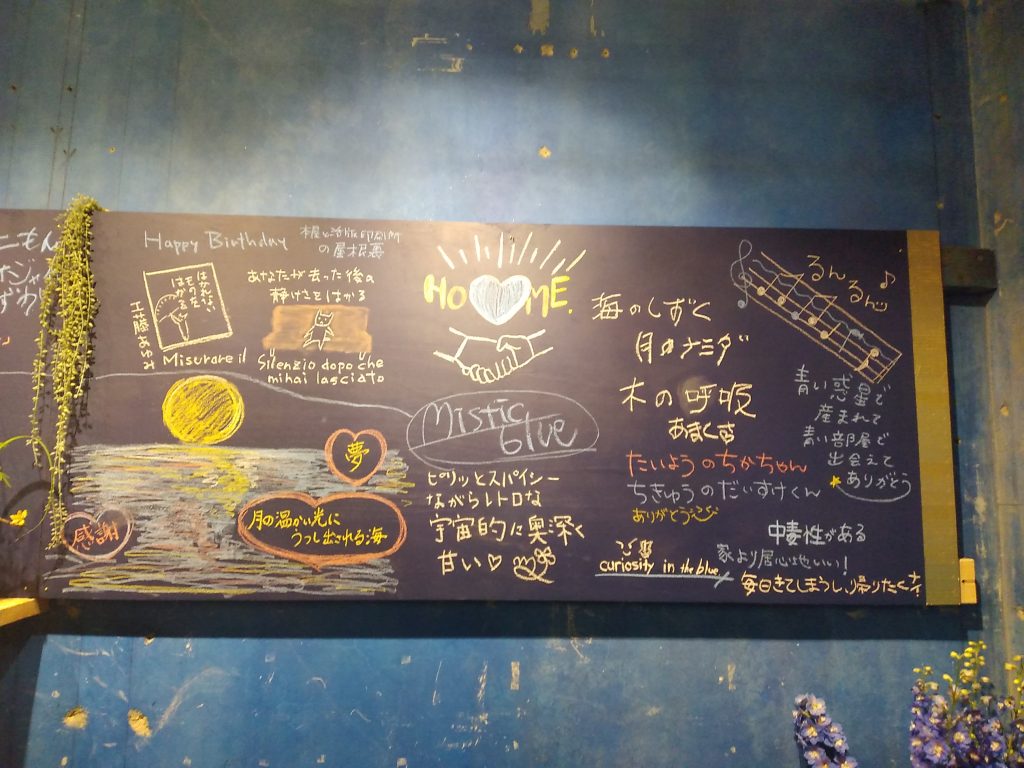 Happy Birthday
本屋と活版印刷所
の屋根裏
はかれない
ものを
はかる
工藤あゆみ
Misurare il
あなたが去った後の
静けさをはかる
Silenzio dopo che
mihai lasciato
HOME.
海のしずく
月のナミダ
木の呼吸
あまくす
るんるん♪
青い惑星で
産まれて
青い部屋で
出会えて
ありがとう
Mistic
blue
夢
感謝
月の温かい光に
うつし出される海
ピリッとスパイシー
ながらレトロな
宇宙的に奥深く
甘い♡
たいようのちかちゃん
ちきゅうのだいすけくん
ありがとう
curiosity in the blue
中毒性がある
家より居心地いい!
毎日きてしまうし、帰りたくナイ